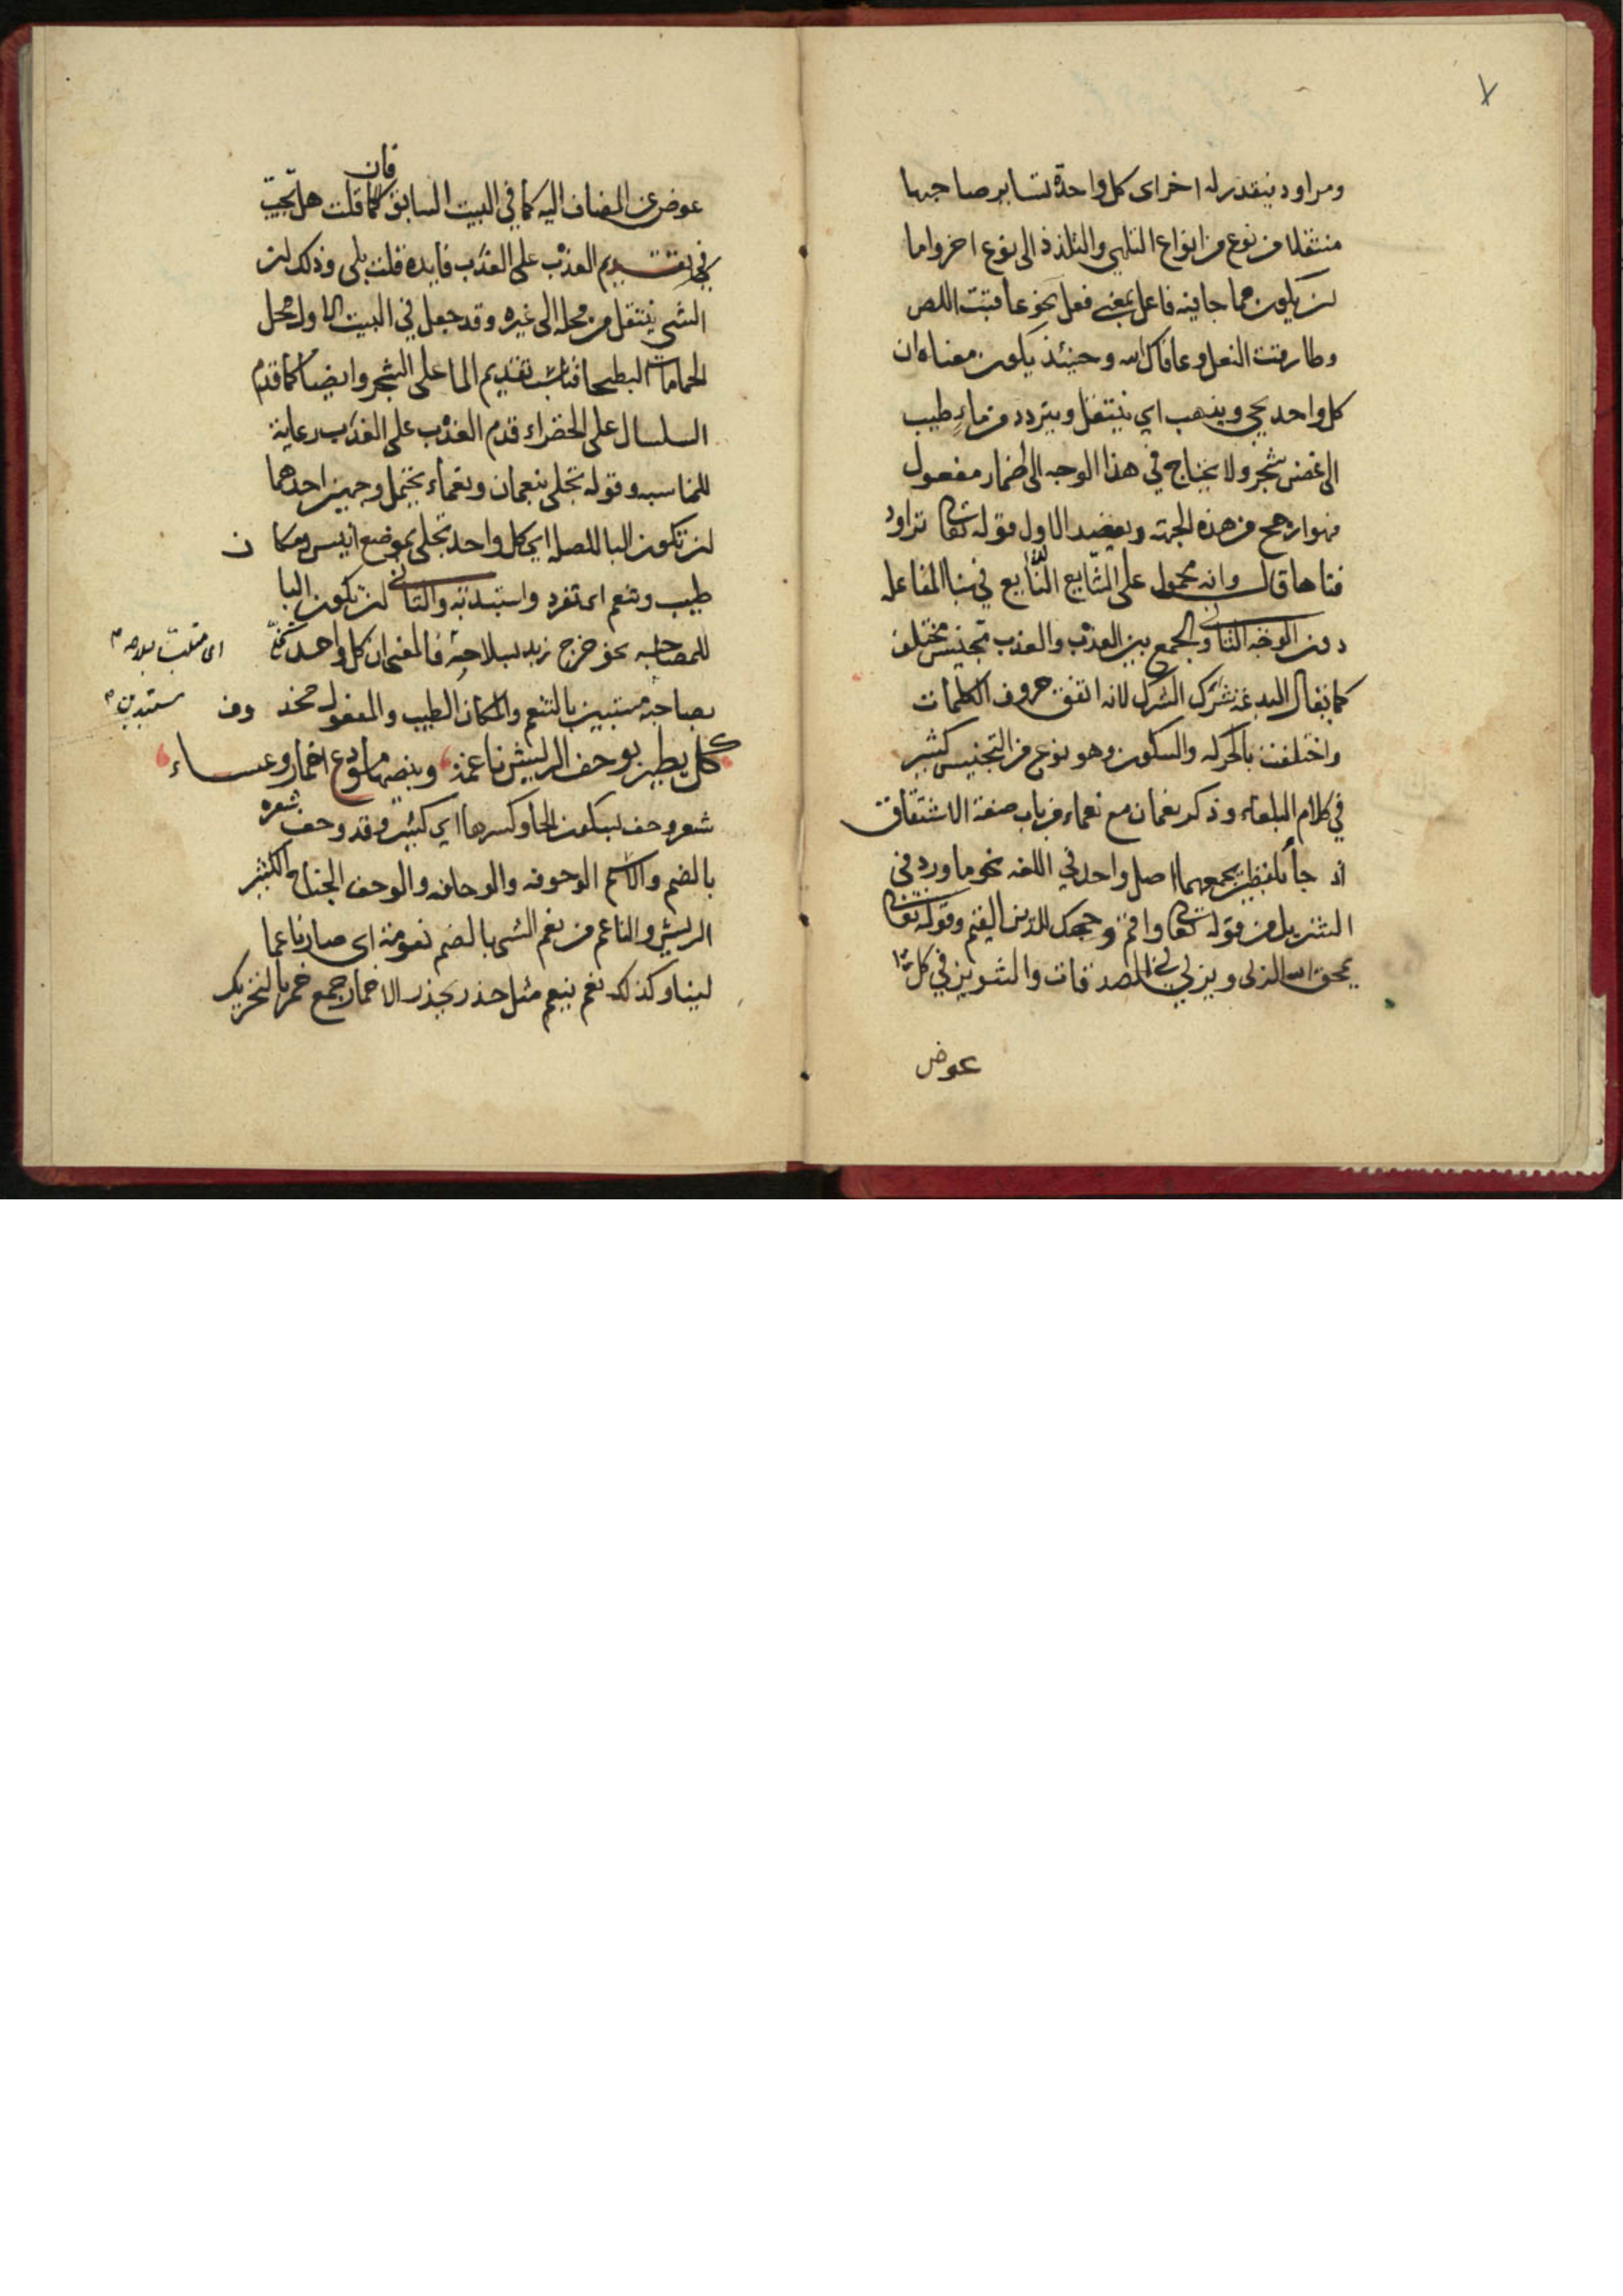 ٧
ومراود بتقدير له اخرى اى كل واحدة تساير صاحبها
منتقلا من نوع من انواع التلهي والتلذذ الى نوع اخر واما
ان يكون مما جا فيه فاعل بمعنى فعل نحو عاقبت اللص
وطارقت النعل وعافاك الله وحينئذ يكون معناه ان
كل واحد يجي ويذهب اي ينتقل ويتردد من ماء طيب
الى غض شجر ولا يحتاج في هذا الوجه الى اضمار مفعول
فهو ارجح من هذه الجهة ويعضد الاول قوله تعالى تراود
فتاها قال وانه محمول على الشايع الذايع في بنا المفاعله
دون الوجه الثاني والجمع بين العذب والعذب تجنيس مختلف
كما يقال البدعة شرك الشرك لانه اتفق حروف الكلمات
واختلفت بالحركه والسكون وهو نوع من التجنيس كثير
في كلام البلغاء وذكر نعمان مع نعماء من باب صنعة الاشتقاق
اذ جا بلفظين يجمعهما اصل واحد في اللغه نحو ما ورد في
التنزيل من قوله تعالى واقم وجهك للدين القيم وقوله تعالى
يمحق الله الربى ويربي الصدقات والتنوين في كل
عوض
عوض عن المضاف اليه كما في البيت السابق فان قلت هل تجيب
في تقديم العذب على العذب فايده قلت بلى وذلك لان
الشي ينتقل من محله الى غيره وقد جعل في البيت الاول محل
الحمامات البطحا فناسب تقديم الما على الشجر وايضا كما قدم
السلسال على الخضراء قدم العذب على العذب رعاية
للمناسبه وقوله تخلى بنعمان ونعماء يحتمل وجهين احدهما
ان تكون البا للصله اي كل واحد تخلى بموضع انيس ومكان
طيب وتنعم اى تفرد واستبد به والثاني ان تكون البا
للمصاحبه نحو خرج زيد بسلاحه فالمعنى ان كل واحد تخلى
بصاحبه ملتبسين بالتنعم والمكان الطيب والمفعول محذوف
كل يطير بوحف الريش ناعمة وبنصها ما بودع اخمار وعساء
شعر وحف بسكون الحا وكسرها اي كثير وقد وحف شعره
بالضم والاسم الوحوفه والوحافه والوحف الجناح الكثير
الريش والناعم من نعم الشي بالضم نعومة اى صار ناعما
لينا وكذلك نعم ينعم مثل حذر يحذر الاخمار جمع خمر بالتحريك